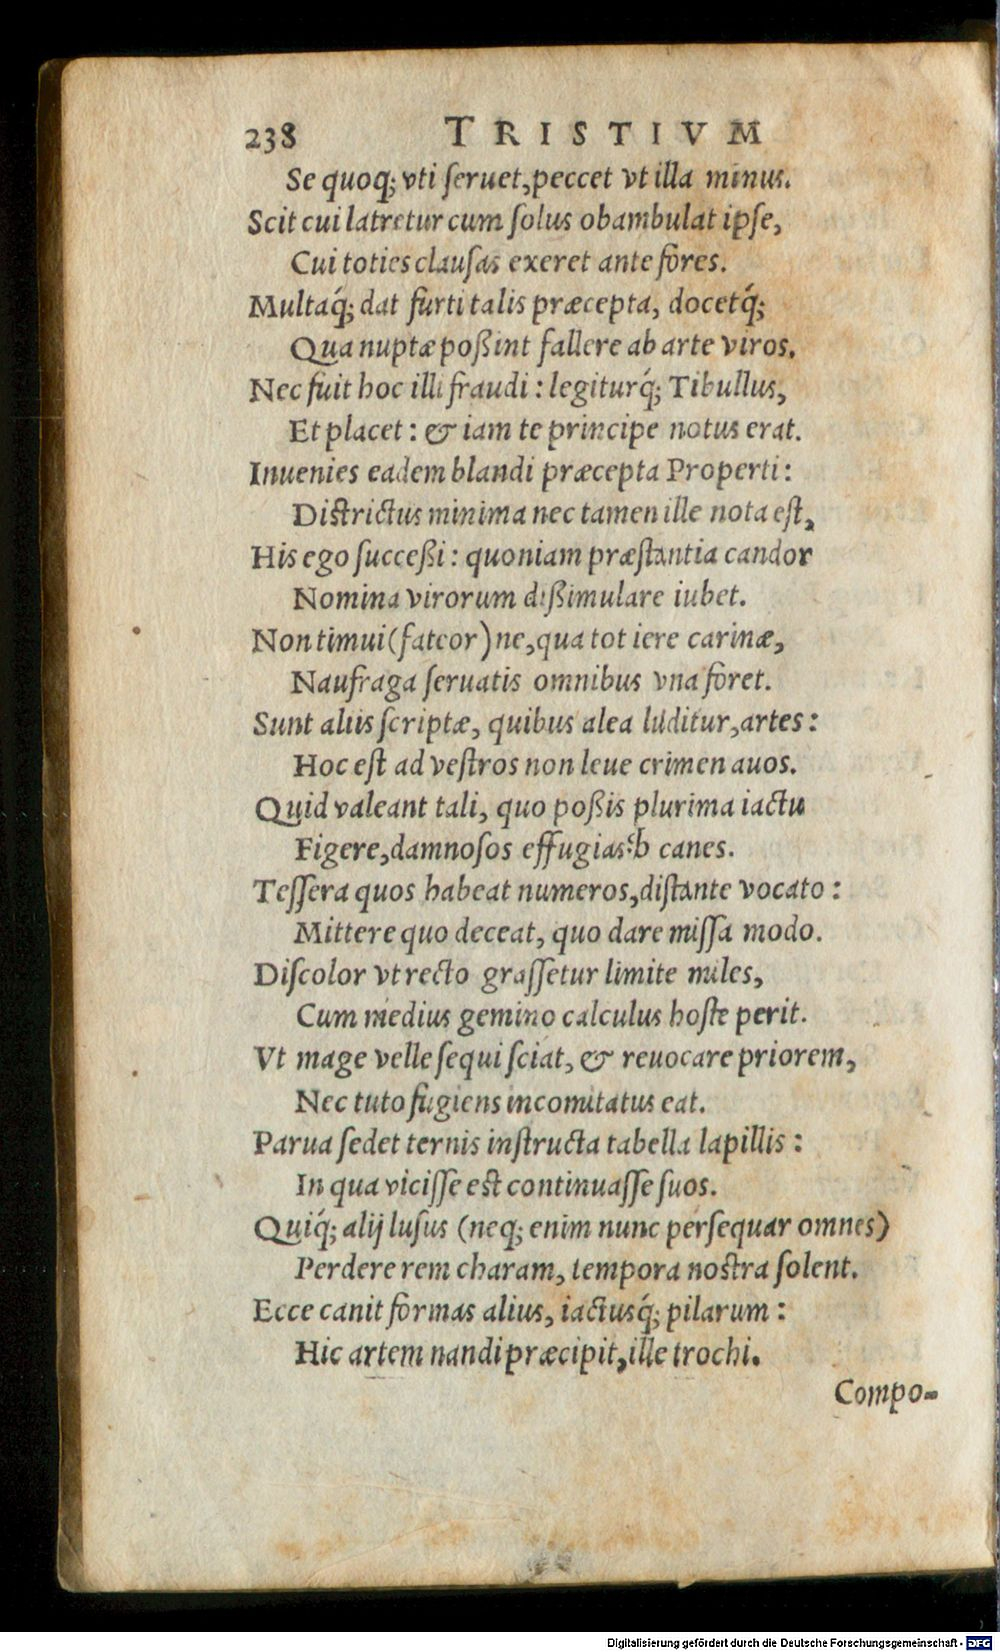 238 TRISTIVM
Se quoq; vti ſeruet, peccet vt illa minus.
Scit cui latretur cum ſolus obambulat ipſe,
Cui toties clauſas exeret ante fores.
Multaq́; dat furti talis præcepta, docetq́;
Qua nuptæ poßint fallere ab arte viros.
Nec fuit hoc illi fraudi: legiturq́; Tibullus,
Et placet: & iam te principe notus erat.
Inuenies eadem blandi præcepta Properti:
Districtus minima nec tamen ille nota eſt,
His ego ſucceßi: quoniam præſtantia candor
Nomina virorum dißimulare iubet.
Non timui (fateor) ne, qua tot iere carinæ,
Naufraga ſeruatis omnibus vna foret.
Sunt aliis ſcriptæ, quibus alea luditur, artes:
Hoc eſt ad veſtros non leue crimen auos.
Quid valeant tali, quo poßis plurima iactu
Figere, damnoſos effugiasꝗ́; canes.
Teſſera quos habeat numeros, diſtante vocato:
Mittere quo deceat, quo dare miſſa modo.
Diſcolor vt recto graſſetur limite miles,
Cum medius gemino calculus hoſte perit.
Vt mage velle ſequi ſciat, & reuocare priorem,
Nec tuto fugiens incomitatus eat.
Parua ſedet ternis inſtructa tabella lapillis:
In qua viciſſe est continuaſſe ſuos.
Quiq́; alij luſus (neq; enim nunc perſequar omnes)
Perdere rem charam, tempora nostra ſolent.
Ecce canit formas alius, iactusq́; pilarum:
Hic artem nandi præcipit, ille trochi.
Compo-
Digitalisierung gefördert durch die Deutsche Forschungsgemeinschaft - DFG